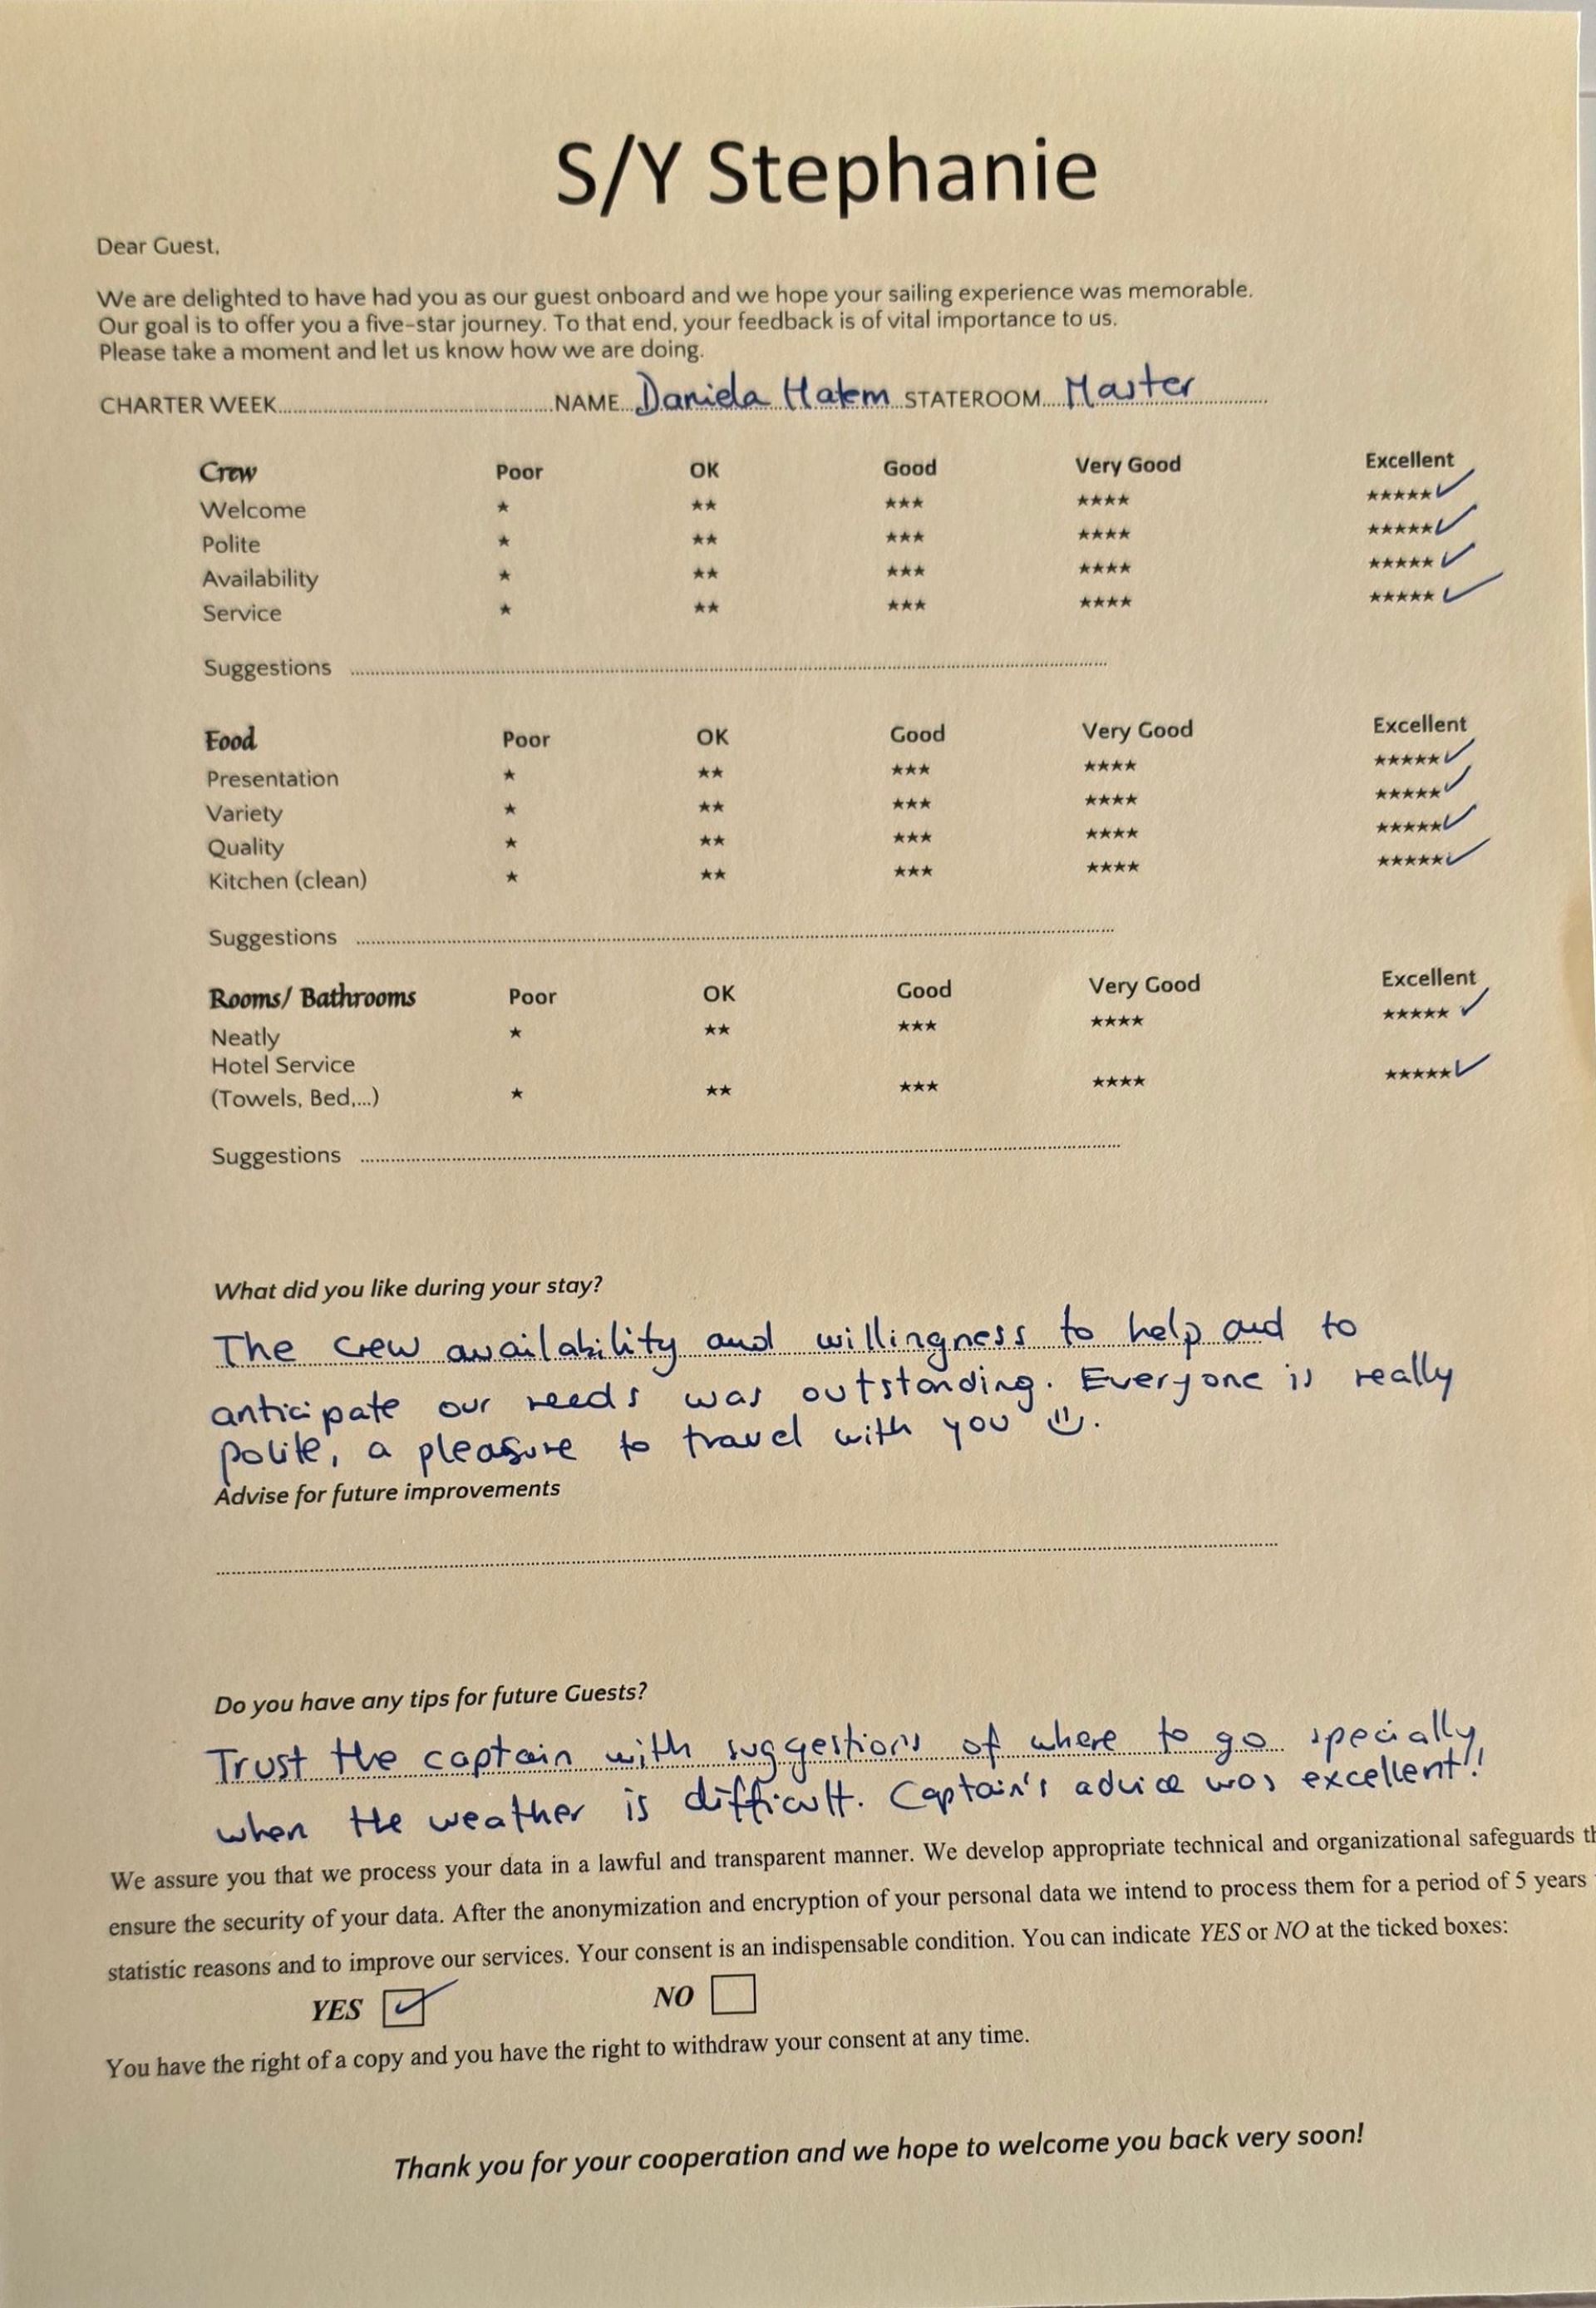 S/Y Stephanie
Dear Guest,
We are delighted to have had you as our guest onboard and we hope your sailing experience was memorable.
Our goal is to offer you a five-star journey. To that end, your feedback is of vital importance to us.
Please take a moment and let us know how we are doing.
CHARTER WEEK........................NAME...Daniela Hatem...STATEROOM....Master............
Crew Poor OK Good Very Good Excellent
Welcome ★ ★★ ★★★ ★★★★ ★★★★★ ✓
Polite ★ ★★ ★★★ ★★★★ ★★★★★ ✓
Availability ★ ★★ ★★★ ★★★★ ★★★★★ ✓
Service ★ ★★ ★★★ ★★★★ ★★★★★ ✓
Suggestions ........................
Food Poor OK Good Very Good Excellent
Presentation ★ ★★ ★★★ ★★★★ ★★★★★ ✓
Variety ★ ★★ ★★★ ★★★★ ★★★★★ ✓
Quality ★ ★★ ★★★ ★★★★ ★★★★★ ✓
Kitchen (clean) ★ ★★ ★★★ ★★★★ ★★★★★ ✓
Suggestions ........................
Rooms/ Bathrooms Poor OK Good Very Good Excellent
Neatly ★ ★★ ★★★ ★★★★ ★★★★★ ✓
Hotel Service
(Towels, Bed,...) ★ ★★ ★★★ ★★★★ ★★★★★ ✓
Suggestions ........................
What did you like during your stay?
The crew availability and willingness to help and to
anticipate our needs was outstanding. Everyone is really
polite, a pleasure to travel with you ☺.
Advise for future improvements
........................
Do you have any tips for future Guests?
Trust the captain with suggestions of where to go specially
when the weather is difficult. Captain's advice was excellent!!
We assure you that we process your data in a lawful and transparent manner. We develop appropriate technical and organizational safeguards th
ensure the security of your data. After the anonymization and encryption of your personal data we intend to process them for a period of 5 years
statistic reasons and to improve our services. Your consent is an indispensable condition. You can indicate YES or NO at the ticked boxes:
YES ☑ NO ☐
You have the right of a copy and you have the right to withdraw your consent at any time.
Thank you for your cooperation and we hope to welcome you back very soon!